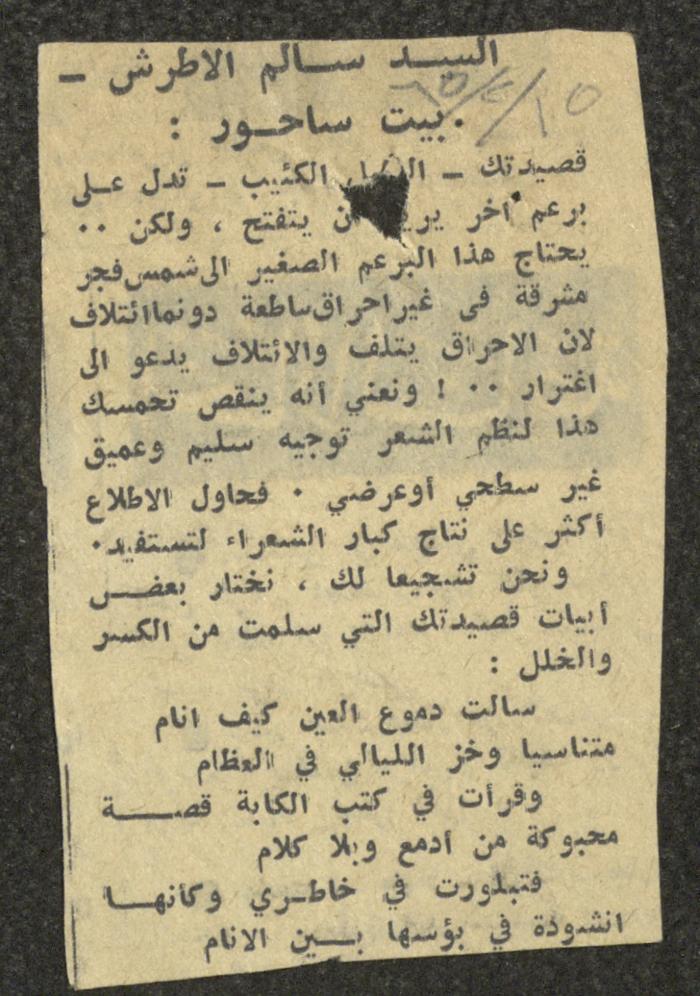 السيد سالم الاطرش –
بيت ساحور :
قصيدتك – الكئيب – تدل على
برعم آخر يريد أن يتفتح ، ولكن ٠٠
يحتاج هذا البرعم الصغير الى شمس فجر
مشرقة في غير احراق ساطعة دونما ائتلاف
لان الاحراق يتلف والائتلاف يدعو الى
اغترار ٠٠ ! ونعني أنه ينقص تحمسك
هذا لنظم الشعر توجيه سليم وعميق
غير سطحي أو عرضي ٠ فحاول الاطلاع
أكثر على نتاج كبار الشعراء لتستفيد ٠
ونحن تشجيعا لك ، نختار بعض
أبيات قصيدتك التي سلمت من الكسر
والخلل :
سالت دموع العين كيف انام
متناسيا وخز الليالي في العظام
وقرأت في كتب الكابة قصة
محبوكة من أدمع وبلا كلام
فتبلورت في خاطري وكأنها
انشودة في بؤسها بين الانام